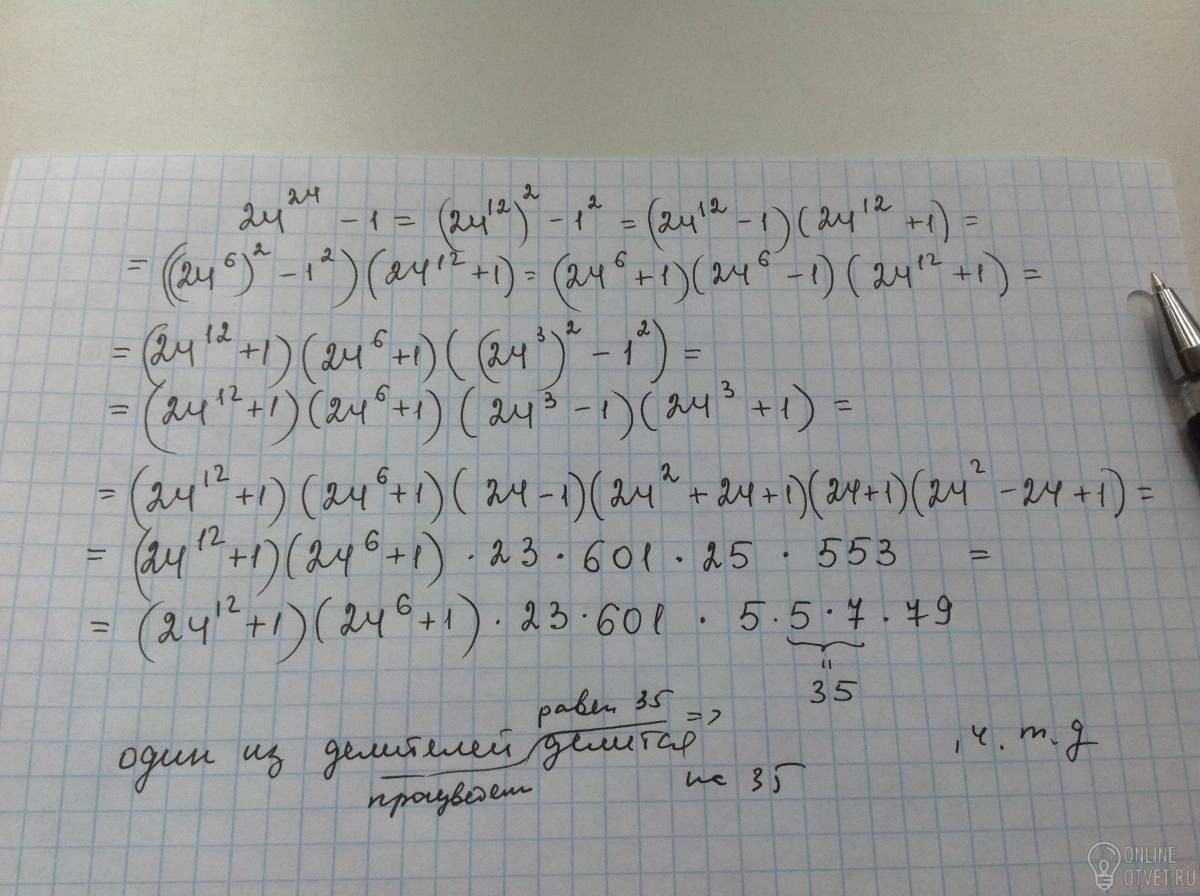 24^24 - 1 = (24^12)^2 - 1^2 = (24^12 - 1)(24^12 + 1) =
= ((24^6)^2 - 1^2)(24^12 + 1) = (24^6 + 1)(24^6 - 1)(24^12 + 1) =
= (24^12 + 1)(24^6 + 1)((24^3)^2 - 1^2) =
= (24^12 + 1)(24^6 + 1)(24^3 - 1)(24^3 + 1) =
= (24^12 + 1)(24^6 + 1)(24 - 1)(24^2 + 24 + 1)(24 + 1)(24^2 - 24 + 1) =
= (24^12 + 1)(24^6 + 1) · 23 · 601 · 25 · 553 =
= (24^12 + 1)(24^6 + 1) · 23 · 601 · 5 · 5 · 7 · 79
=
35
равен 35 =>
один из делителей делится , ч. т. д
на 35
ONLINE
OTVET.RU